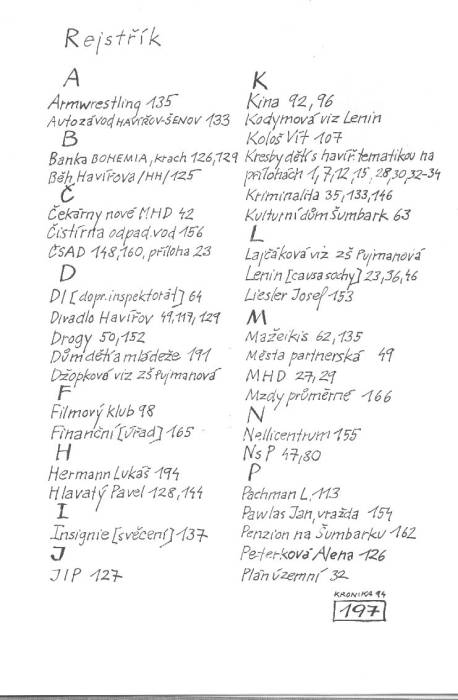 Rejstřík
A
Armwrestling 135
Autozávod HAVÍŘOV-ŠENOV 133
B
Banka BOHEMIA, krach 126,129
Běh Havířova /HH/ 125
Č
Čekárny nové MHD 42
Čistírna odpad. vod 156
ČSAD 148,160, příloha 23
D
DI [dopr. inspektorát] 64
Divadlo Havířov 49,117,129
Drogy 50,152
Dům dětí a mládeže 191
Džopková viz ZŠ Pujmanová
F
Filmový klub 98
Finanční [úřad] 165
H
Hermann Lukáš 194
Hlavatý Pavel 128,144
I
Insignie [svěcení] 137
J
JIP 127
K
Kina 92,96
Kodymová viz Lenin
Kološ Vít 107
Kresby dětí s havíř. tematikou na
přílohách 1,7,12,15,28,30,32-34
Kriminalita 35,133,146
Kulturní dům Šumbark 63
L
Lajčáková viz ZŠ Pujmanová
Lenin [causa sochy] 23,36,46
Liesler Josef 153
M
Mažeikis 62,135
Města partnerská 49
MHD 27,29
Mzdy průměrné 166
N
Nellicentrum 155
NsP 47,80
P
Pachman L. 113
Pawlas Jan, vražda 154
Penzion na Šumbarku 162
Peterková Alena 126
Plán územní 32
KRONIKA 94
197